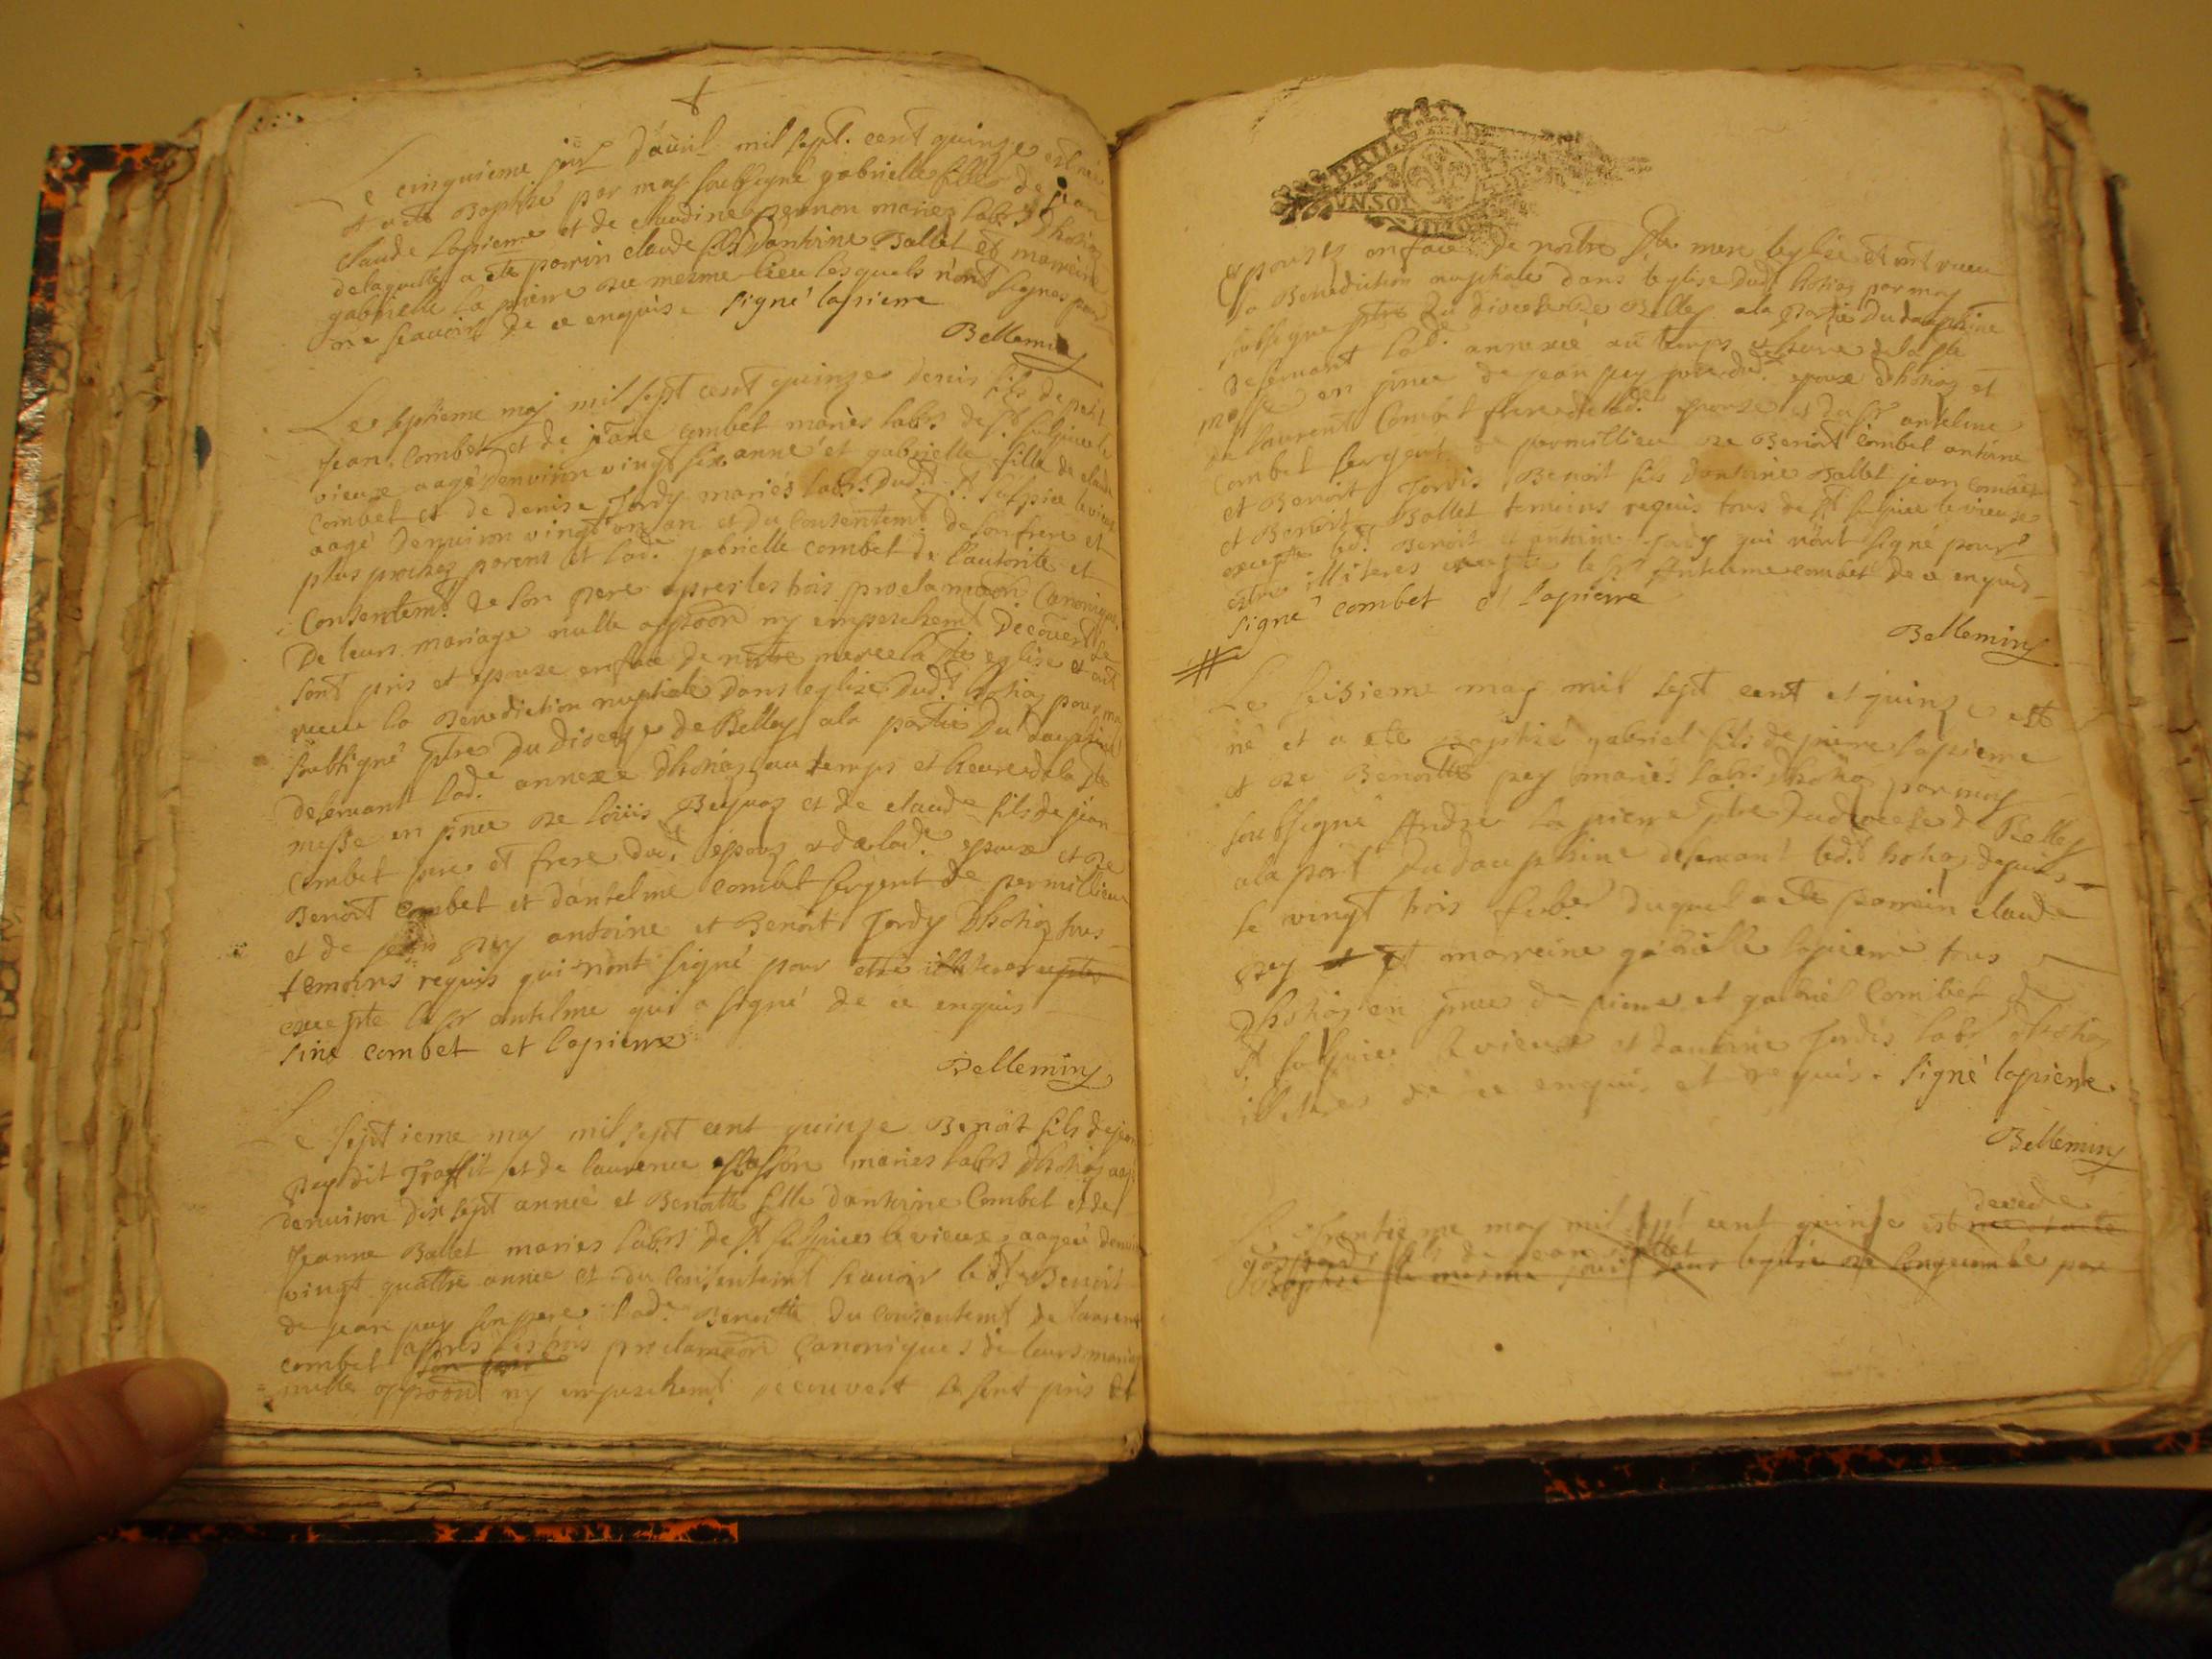 Le cinquieme jour d'avril mil sept cent quinze est née
et a ete Baptisé par moy soubsigné gabrielle fille de jean
claude lapierre et de claudine pernon mariez labrs dhostiaz
de laquelle a ete parrin claude fils d'anthoine Ballet et marreine
gabrielle la pierre du mesme lieu lesquels n'ont signes pour
ne scavoir de ce enquis. signé lapierre
Bellemin
Le septieme may mil sept cent quinze denis fils de petit
jean Combet et de jeane combet mariés labrs de st sulpice le
vieux aagé d'environ vingt six anné et gabrielle fille de claude
Combet et de denise Jordy mariés labrs dudt st sulpice le vieux
aagé denviron vingt un an et du consentemt de son frere et
plus proches parens et lade gabrielle combet de l'autorité et
Consentemt de son pere apres les trois proclamaon Canoniques
De leurs mariage nulle oppoon ny empeschemt decouvert se
sont pris et epouse en face de nostre mere la ste eglise et ont
receu la Benediction nuptiale dans leglise dudt hostiaz par moy
soubsigné ptre du diocese de Belley a la partie du dauphiné
deservant lade annexe dhostiaz au temps et heure de la ste
messe en pnce de loüis Beynaz et de claude fils de jean
combet pere et frere dudt epoux et de lade epouse et de
Benoît combet et d'antelme combet sergent de permillieu
et de jean pey antoine et Benoît Jordy Dhostiaz tous
temoins requis qui n'ont signé pour estre illiteres
excepté le sr antelme qui a signé de ce enquis
siné combet et lapierre
Bellemin
Le septieme may mil sept cent quinze Benoît fils de jean
pey dit Traffit et de laurence mariés labrs dhostiaz aagé
denviron dix sept anneé et Benoitte fille dantoine Combet et de
Jeanne Ballet mariés labrs de st sulpice le vieux aageé denviron
vingt quattre année et du consentemt scavoir ledt Benoit
de jean pey son pere lade Benoitte du consentemt de laurent
combet son frere apres les trois proclamaon Canoniques de leurs mariage
nulle oppoon ny empeschemt decouvert se sont pris et
BAIL
VN.SOL
Epouses en face de nostre ste mere leglise et ont receu
la Benediction nuptiale dans leglise dudt hostiaz par moy
soubsigne ptre du diocese de Belley a la partie du dauphine
deservant lade annexe au temps et heure de la ste
messe en pnce de jean pey pere dudt epoux dhostiaz et
de laurent Combet frere de lade epouse et du sr antelme
combet sergent de permillieu de Benoit Combet antoine
et Benoit Jordis Benoit fils dantoine Ballet jean combet
et Benoit Ballet temoins requis tous de st sulpice le vieux
excepté ledt Benoit et antoine Jordy qui n'ont signé pour
estre illiteres excepté le sr Antelme combet de ce enquis
signé combet et lapierre
Bellemin
Le seisieme may mil sept cent et quinze est
né et a ete Baptisé gabriel fils de pierre lapierre
et de Benoitte pey mariés labrs dhostiaz par moy
soubsigné André la pierre ptre du diocese de Belley
a la part du dauphiné deservant ledt hostiaz depuis
le vingt trois duquel a ete parrein claude
pey et marreine gabrielle lapierre tous
dhostiaz en pnce de pierre et gabriel Combet de
st sulpice le vieux et dantoine Jordis labrs dhostiaz
illiteres de ce enquis et requis. signé lapierre
Bellemin
decedé
Le trentieme may mil sept cent quinze est né et a ete
gaspard fils de jean Ballet
Baptisé le mesme jour dans leglise de longecombe par